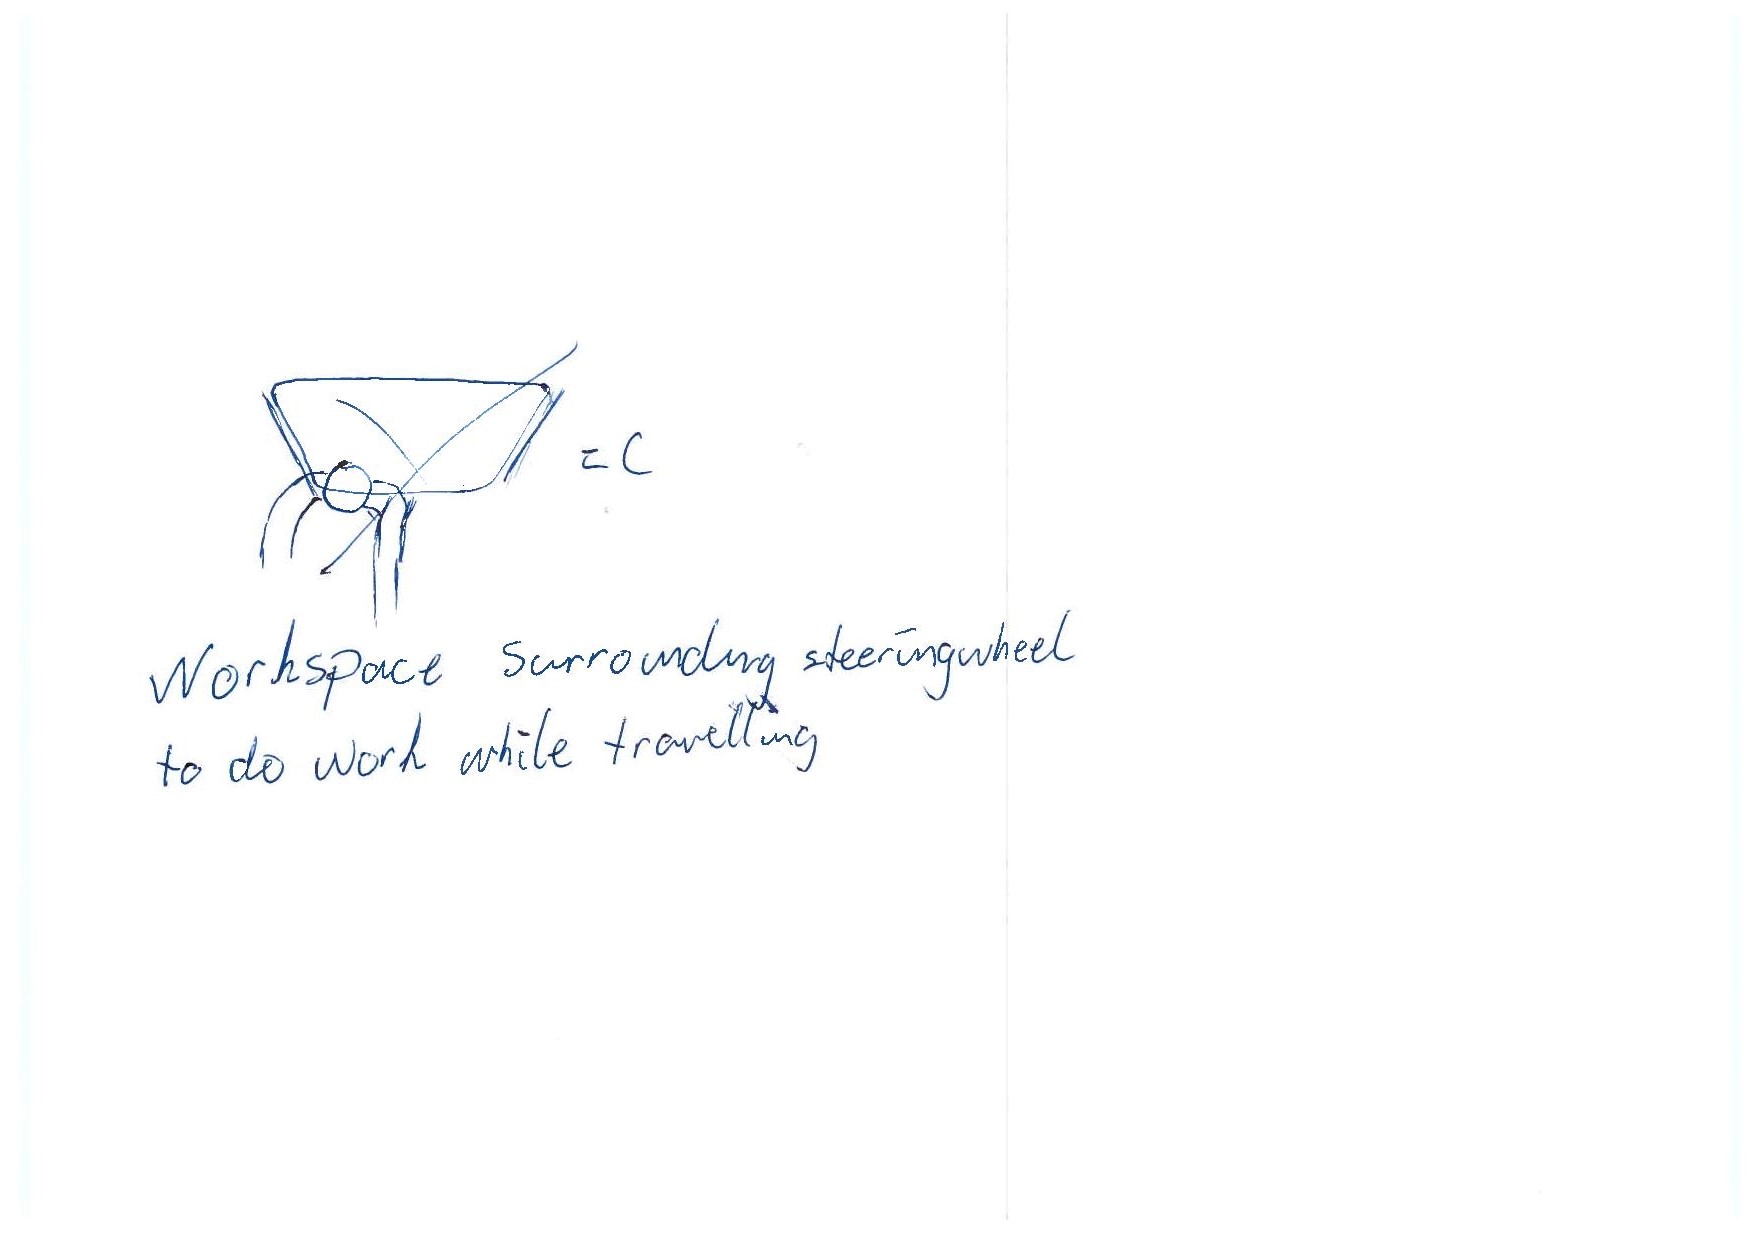 = C
Workspace surrounding steeringwheel
to do work while travelling